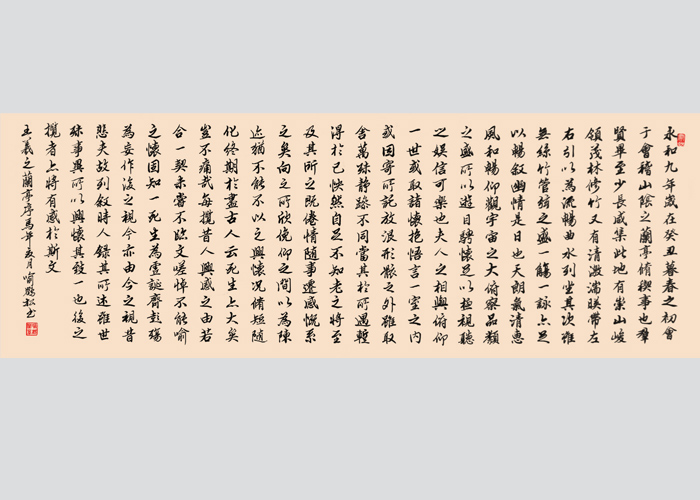 永和九年歲在癸丑暮春之初會
于會稽山陰之蘭亭脩稧事也羣
賢畢至少長咸集此地有崇山峻
領茂林修竹又有清激湍暎帶左
右引以為流觴曲水列坐其次雖
無絲竹管弦之盛一觴一詠亦足
以暢叙幽情是日也天朗氣清惠
風和暢仰觀宇宙之大俯察品類
之盛所以遊目騁懷足以極視聽
之娛信可樂也夫人之相與俯仰
一世或取諸懷抱悟言一室之內
或因寄所託放浪形骸之外雖取
舍萬殊静躁不同當其於所遇蹔
得於己快然自足不知老之將至
及其所之既倦情隨事遷感慨系
之矣向之所欣俛仰之閒以為陳
迹猶不能不以之興懷況脩短隨
化終期於盡古人云死生亦大矣
豈不痛哉每攬昔人興感之由若
合一契未嘗不臨文嗟悼不能喻
之懷固知一死生為虛誕齊彭殤
為妄作後之視今亦由今之視昔
悲夫故列叙時人錄其所述雖世
殊事異所以興懷其致一也後之
攬者亦將有感於斯文
王羲之蘭亭序馬年月喻松書